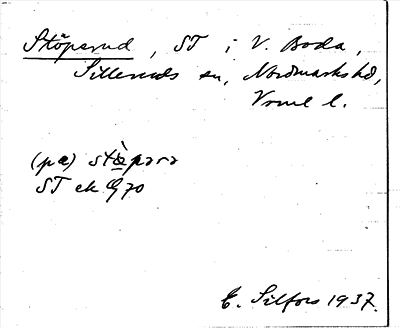 Stöperud, ST i V. Boda,
Silleruds sn, Nordmarks hd,
Vrml l.
(pæ) stö̀pərə
ST ek G70
E. Silfors 1937.